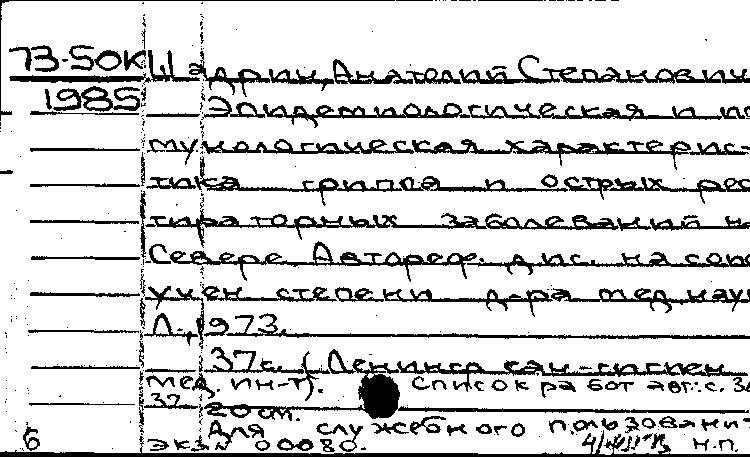 73-50к Шадрин, Анатолий Степанович
1985 Эпидемиологическая и им
мунологическая характерис-
тика гриппа и острых рес
тираторных заболеваний на
Севере Автореф. дис. на соис
учен степени д-ра мед. наук
Л., 1973.
37с. (Ленингр сан-гигиен
мед. ин-т). Список работ авт: с. 36
37
20 см.
Для служебного пользовани
6 экз № 00080. Н.П.